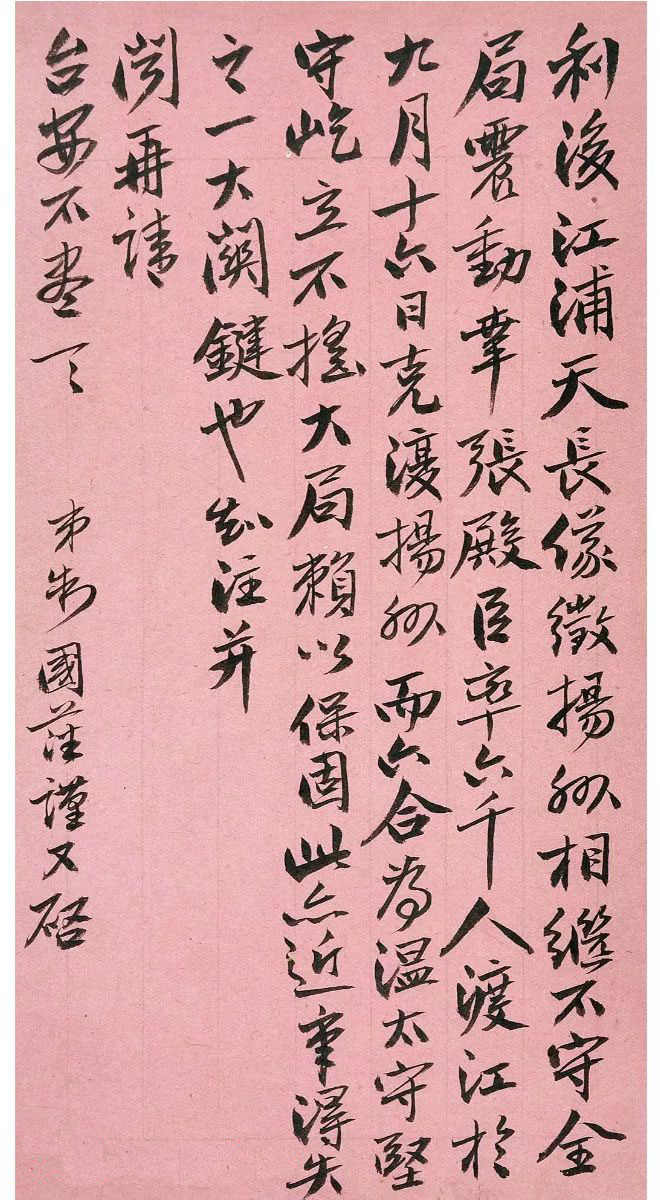 利後江浦天長儀徵揚州相繼不守全
局震動幸張殿臣率六千人渡江於
九月十六日克復揚州而六合為溫太守堅
守屹立不搖大局賴以保固此亦近事得失
之一大關鍵也知注并
聞再請
台安不盡一一
弟制國荃謹又啓